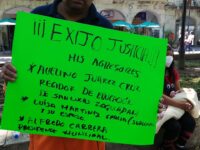 ¡¡¡EXIJO JUSTICIA!!!
MIS AGRESORES
* AVELINO JUAREZ CRUZ
REGIDOR DE
SAN LUCAS ZOQUIAPAM
* LUISA MARTINEZ
Y SU ESPOSO
* ALFREDO CARRERA
PRESIDENTE MUNICIPAL